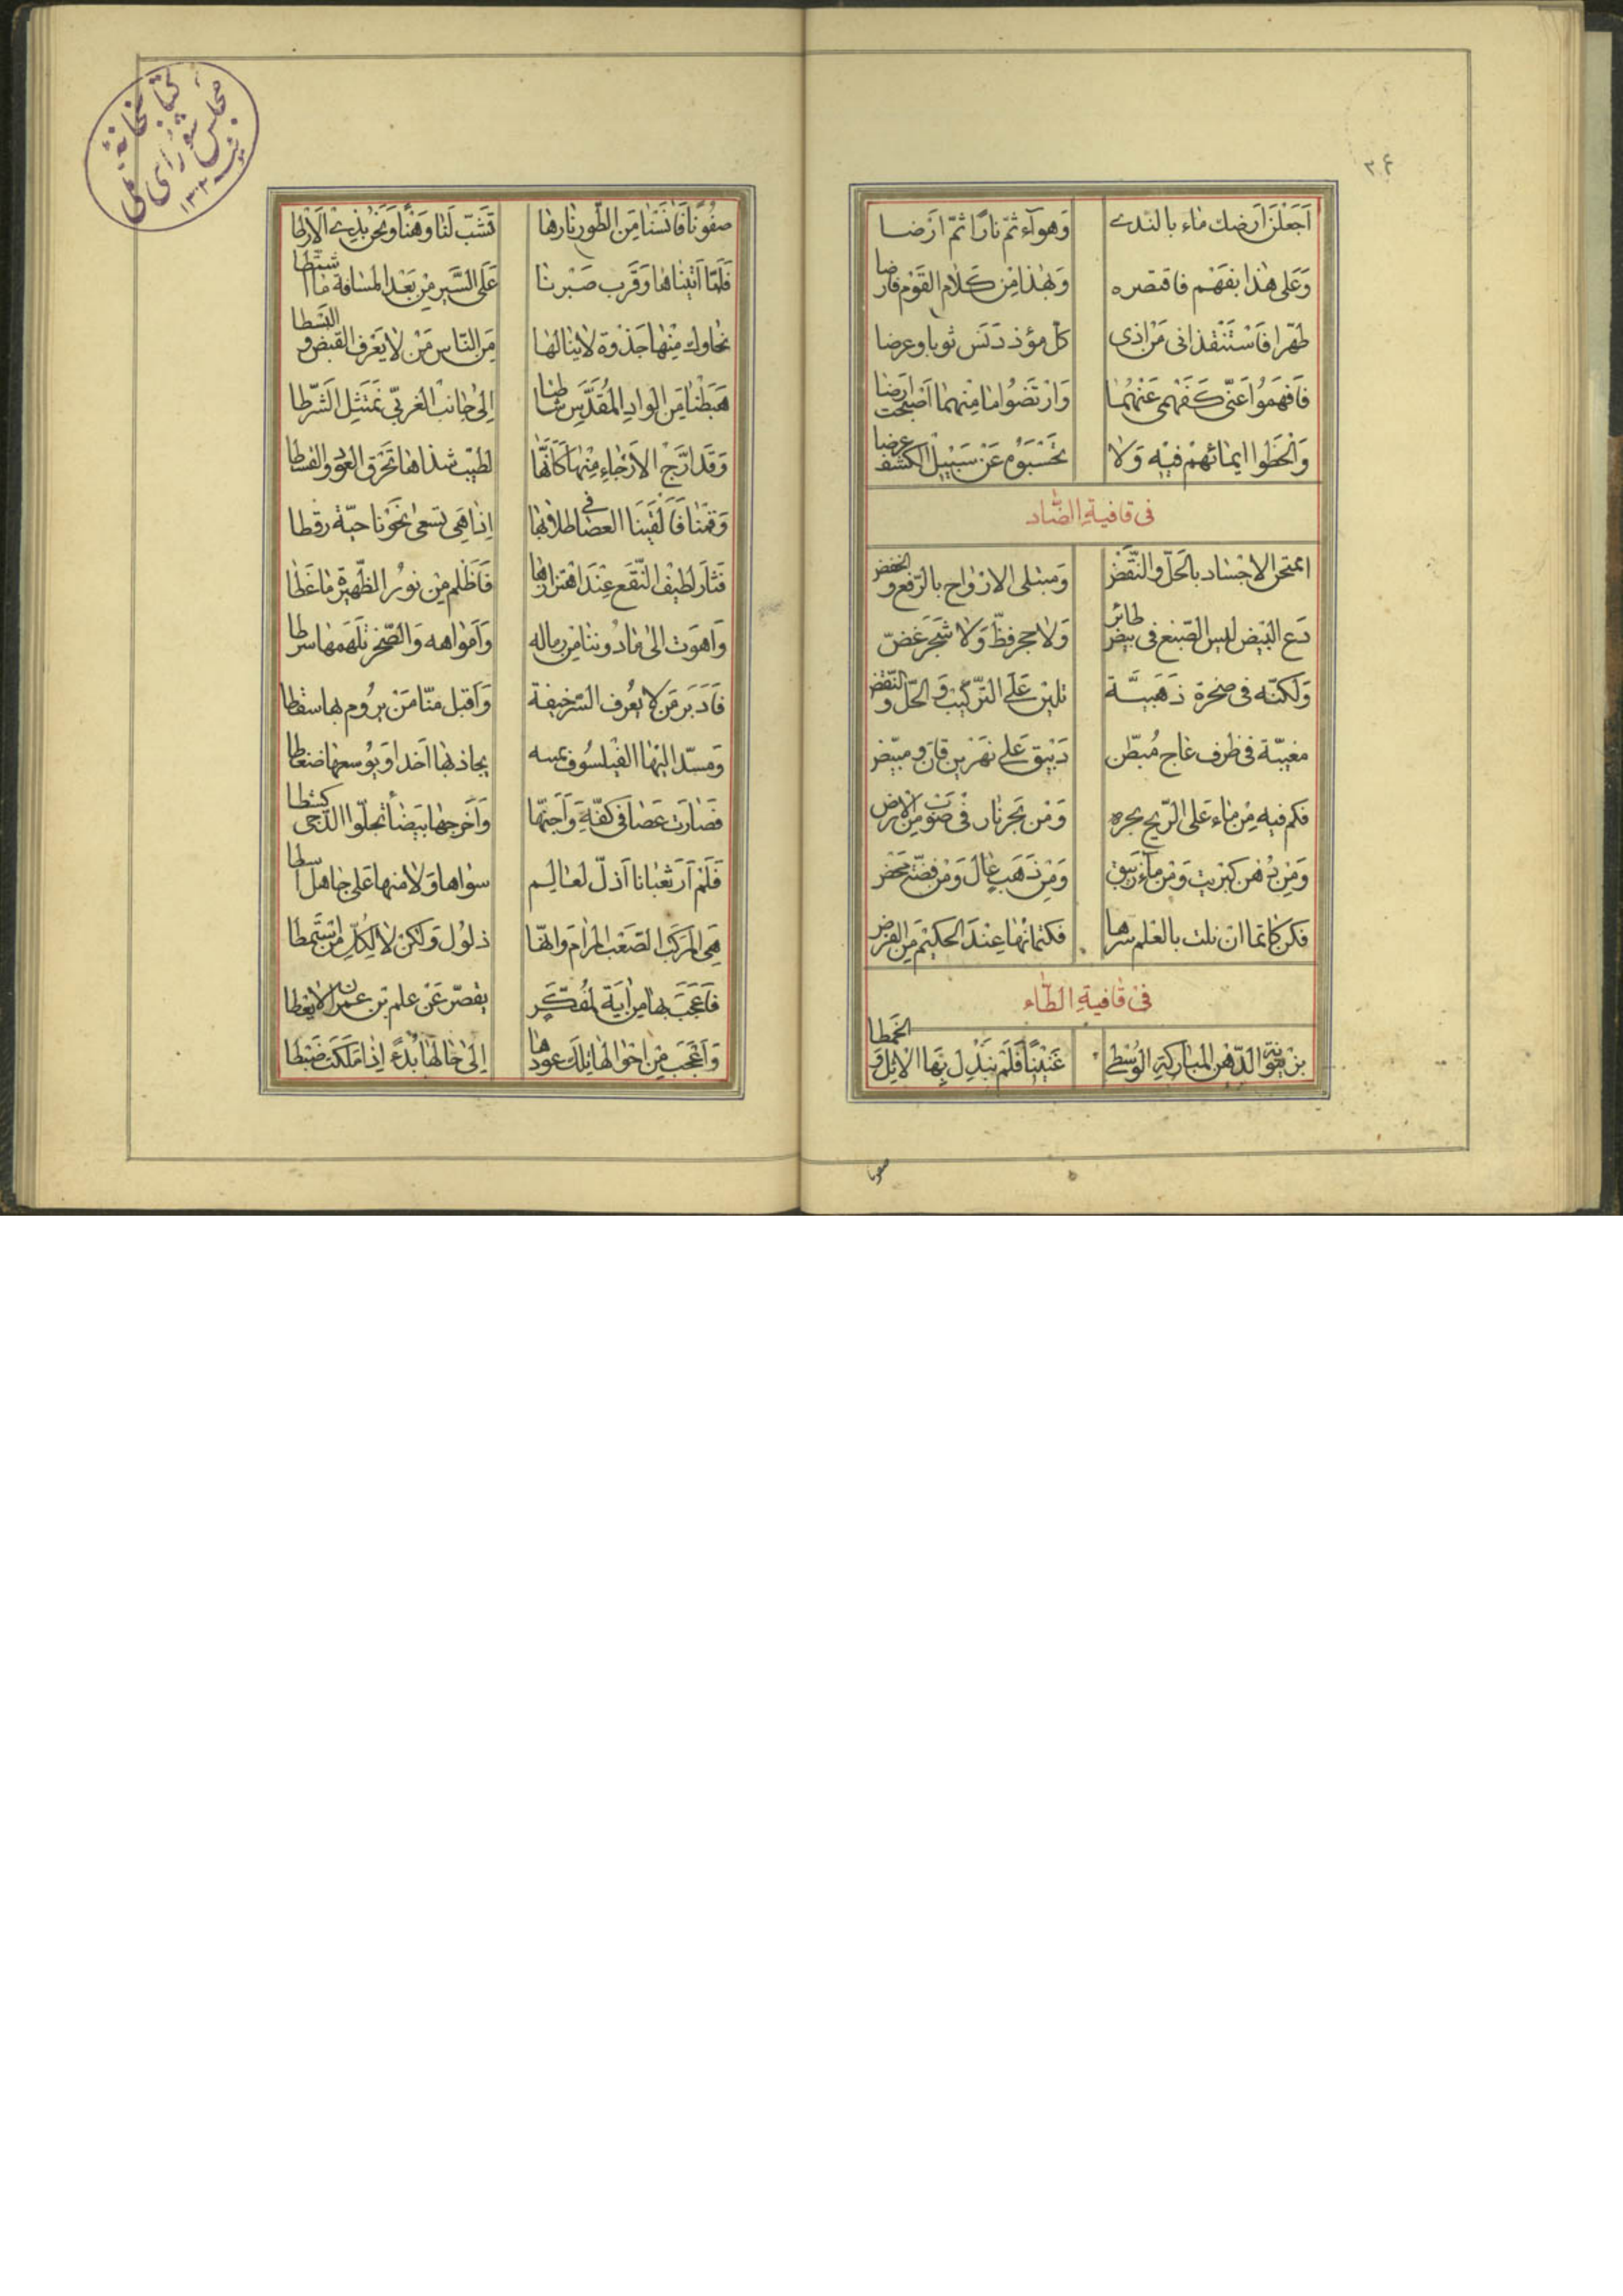 اَجَعَلَنْ اَرضك ماء بالندى وَهوآء ثمّ نارًا ثمّ ارَضا
وَعَلى هذا بفَهْم فاقتصره وَبهٰذا مِن كَلام القَوْم فارضا
طهّرا فَاسْتَنْقذانى مَن اذى كلّ مؤذ دَنَس ثوبا وعرضا
فَافهَمُوا عَنّى كَفَهْمى عَنْهُمٰا وَارْتَضُوا ما مِنهما اَصْبَحت ارَضا
وَالْحَظوا ايمائهمْ فيْه وَلا تَحْسَبوُه عَنْ سَبيْل الكشف عرضا
فى قافيةِ الضّاد
اممتحن الاجْساد بالحَلّ والنّقض وَمبتلى الارْواح بالرّفع و الخفض
دَع البَيْض ليس الصّبْغ فى بيض طائر وَلا حجر فظّ وَلا شَجَر غَضّ
وَلكنّه فى صخرة ذَهَبيَّة تلين عَلَى التّركيْب وَالحَلّ و النّقض
مغيّبة فى ظرف عاج مُبطّن
فكم فيه مِنْ ماء عَلى الرّيح يجره وَمْن بَحر نار فى ضوب مِن الارض
وَمِن دُهن كبريت وَمْن مآء زيبق وَمِن ذَهَب غال وَمْن فضّة مَحْض
فكن كاتما ان نلت بالعلم سرها فكتمانها عنْدَ الحكيْم مِن الفرض
فىْ قافيةِ الطّاء
بزيتونة الدّهن المباركة الوُسْطى غَنيْنٰا فَلَمْ نبَدْل بِهَا الاثل و الخمطا
صفونا
٣۶
صفُوْنا فَانسْنا مِن الطّور نارها تشَبّ لَنا وَهْنًا وَنَحْن بذى الاَرْطا
فَلَمّا اَتينٰاها وَقَرب صَبْرنا عَلَى السَّير مِنْ بَعْد المسافة ما شتّطا
نحاول مِنْها جَذْوة لا ينالها مِن النّاس مَنْ لا يَعْرف القبض و البَسْطا
هَبَطْنا مِن الواد المُقَدَّس شاطئا اِلى جانبْ الغربّى نَمتثِل الشّرطا
وَقَد ارّج الاَرْجٰاء مِنْها كَانّها لطيْب شذاها تحْرق العوُد والقسطا
وَقمْنا فَاَلْقَيْنَا العصٰا فى طلابها اِذا هى تسعى نَحْوَنا حيّة رقطا
فَثار لطيف النّقع عِنْد اهْتزازها فَاَظلم مِن نوُر الظّهيرة ما غَطّا
وَاهوَت الى مادُوننا مِن رماله وَاَمواهه وَالصّخر تلَهَمها سرطا
فَاَدبَر مَن لا يعُرف السّر خيفة وَاَقبل منّا مَنْ يروُم بها سقطا
وَمسّد اليْها الفَيْلسُوف يمينه يجاذبها اَخذا وَيوُسعها ضغطا
فَصٰارَت عَصا فى كفّه وَاَجنّها وَاَخرجها بَيضا تجلّوا الدّجى كشطا
فَلَمْ اَر ثعْبانا اَذلّ لعٰالِم سواها وَلا منها عَلى جاهل اسطا
هىَ المركَبْ الصّعَب المرام وَانهّا ذلوُل وَلكنْ لا لكلّ مَن استَمطا
فَاَعْجَب بها من ايَة لمُفَكّر يقصّر عَنْ علم بن عمران لا يغطا
وَاَعْجَب مِن احْوالها تلك عودها اِلىٰ حالها بُدءً اِذا مَلَكت ضَبْطا
كتابخانهٔ
مجلس شورای
ملی